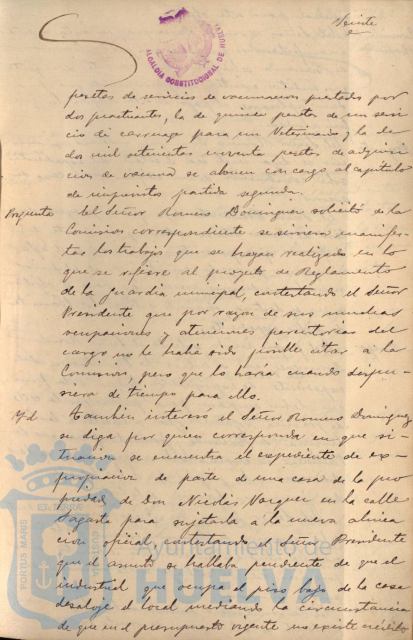 Veinte
ALCALDIA CONSTITUCIONAL DE HUELVA
pesetas de servicios de vacunacion prestados por
dos practicantes, la de quince pesetas de un servi
cio de carruaje para un Veterinario y la de
dos mil noventa pesetas de adquisi
cion de vacuna se abonen con cargo al capitulo
de imprevistos partida segunda.
Pregunta El Señor Romero Dominguez solicitó de la
Comision correspondiente se sirviera manifes
tar los trabajos que se hayan realizado en lo
que se refiere al proyecto de Reglamento
de la guardia municipal, contestando el Señor
Presidente que por razon de sus muchas
ocupaciones y atenciones perentorias del
cargo no le habia sido posible citar a la
Comision, pero que lo haria cuando dispu-
siera de tiempo para ello.
Yd. Tambien interesó el Señor Romero Dominguez
se diga por quien corresponda en que si-
tuacion se encuentra el expediente de ex-
propiacion de parte de una casa de la pro
piedad de Don Nicolás Vazquez en la calle
Sagasta para sujetarla a la nueva alinea
cion oficial, contestando el Señor Presidente
que el asunto se hallaba pendiente de que el
industrial que ocupa el piso bajo de la casa
desaloje el local mediando la circunstancia
de que en el presupuesto vigente no existe
PORTUS MARIS
Ayuntamiento de
HUELVA